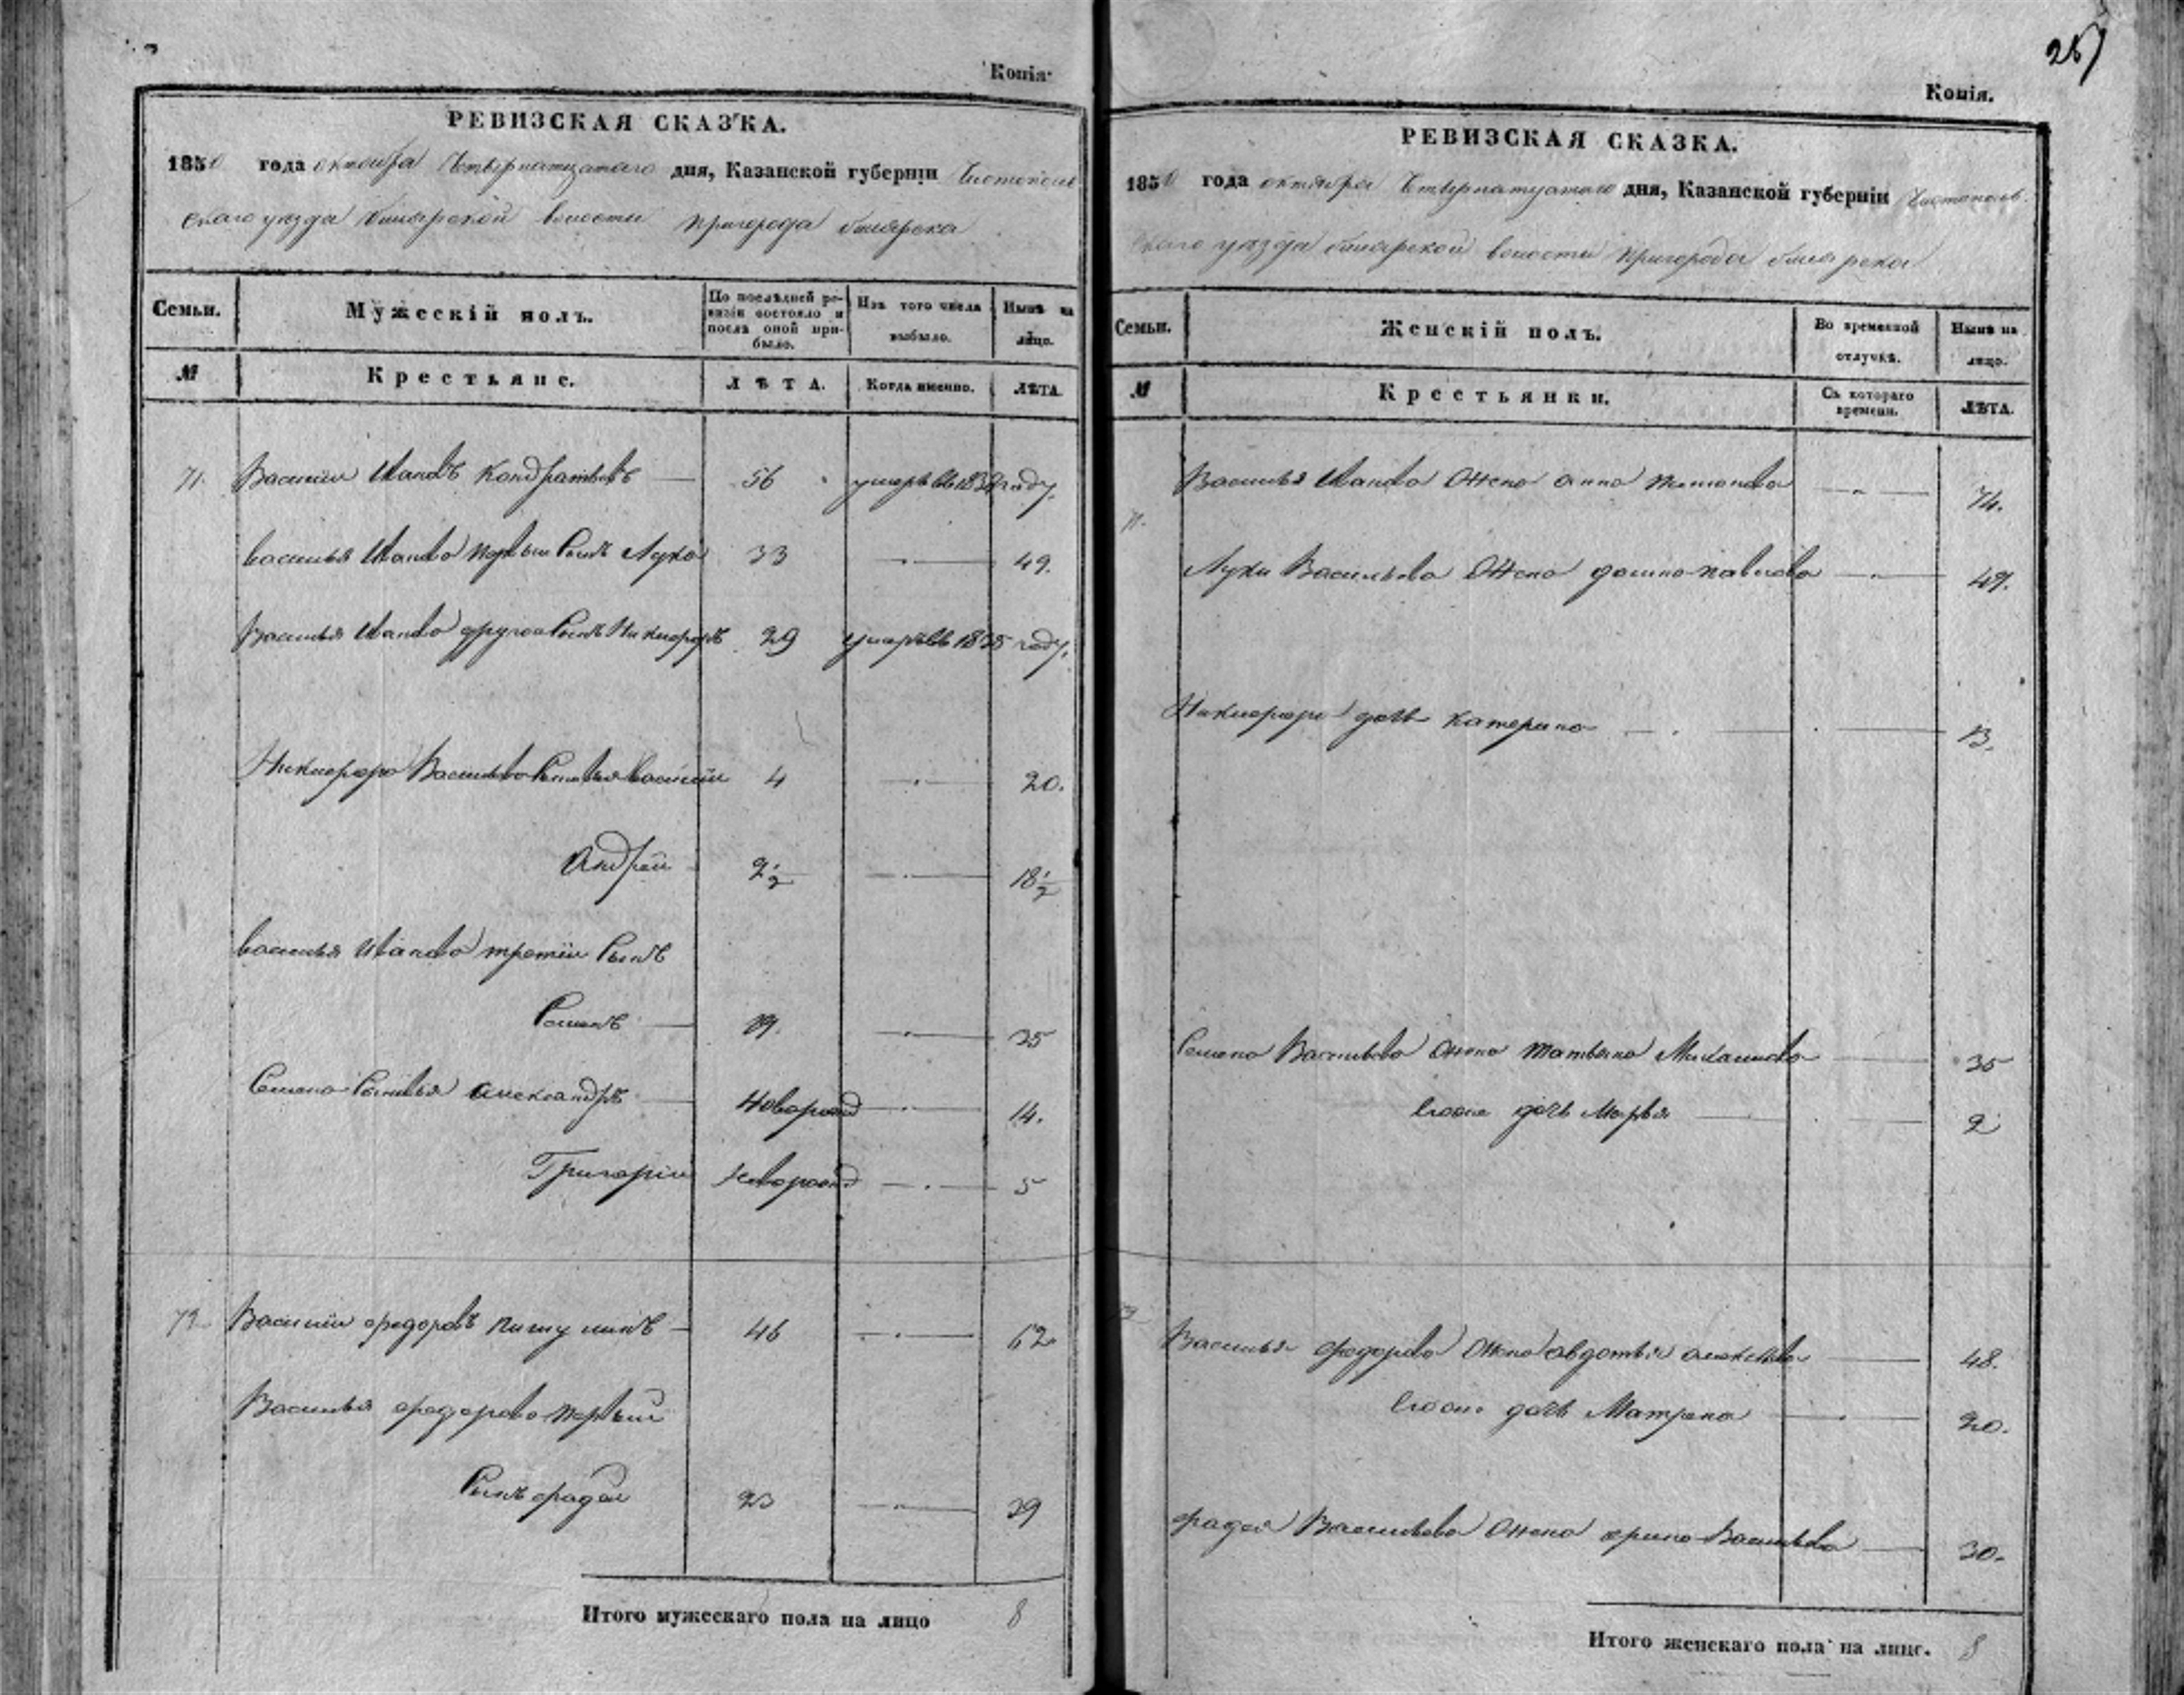 Копія
РЕВИЗСКАЯ СКАЗКА.
1850 года октября Четвертнатцатаго дня, Казанской губерніи Чистополь
скаго уезда билярской волости пригорода билярска
Семьи.
Мужескій полъ.
По послѣдней ре-
визіи состояло и
послѣ оной при-
было.
Изъ того числа
выбыло.
Нынѣ на
лицо.
№
Крестьяне.
ЛѢТА.
Когда именно.
ЛѢТА.
71. Василий Ивановъ Кондратьевъ 56 умеръ въ году.
василья Иванова первый Сынъ Лука 33 49.
Василья Иванова другой Сынъ Никифоръ 29 умеръ въ году.
Никифора Васильева Сыновья василий 4 20.
Андрей 2 1/2 18 1/2
василья Иванова третий Сынъ
Семенъ 19. 35
Семена Сыновья александръ новорожд 14.
Григорий новорожд 5
72 Василий федоровъ 46 62
Василья федорова первый
Сынъ фадей 23 39
Итого мужескаго пола на лицо 8
257
Копія.
РЕВИЗСКАЯ СКАЗКА.
1850 года октября Четвертнатцатаго дня, Казанской губерніи Чистополь
скаго уезда билярской волости пригорода билярска
Семьи.
Женскій полъ.
Во временной
отлучкѣ.
Нынѣ на
лицо.
№
Крестьянки.
Съ котораго
времени.
ЛѢТА.
71. Василья Иванова Жена анна 74.
Луки Васильева Жена домна павлова 49.
Никифора дочь катерина 13.
Семена Васильева Жена татьяна Михайлова 35
дочь Марья 2
72 Василья федорова Жена авдотья алексеева 48.
дочь Матрена 20.
фадея Васильева Жена Васильева 30.
Итого женскаго пола на лицо. 8